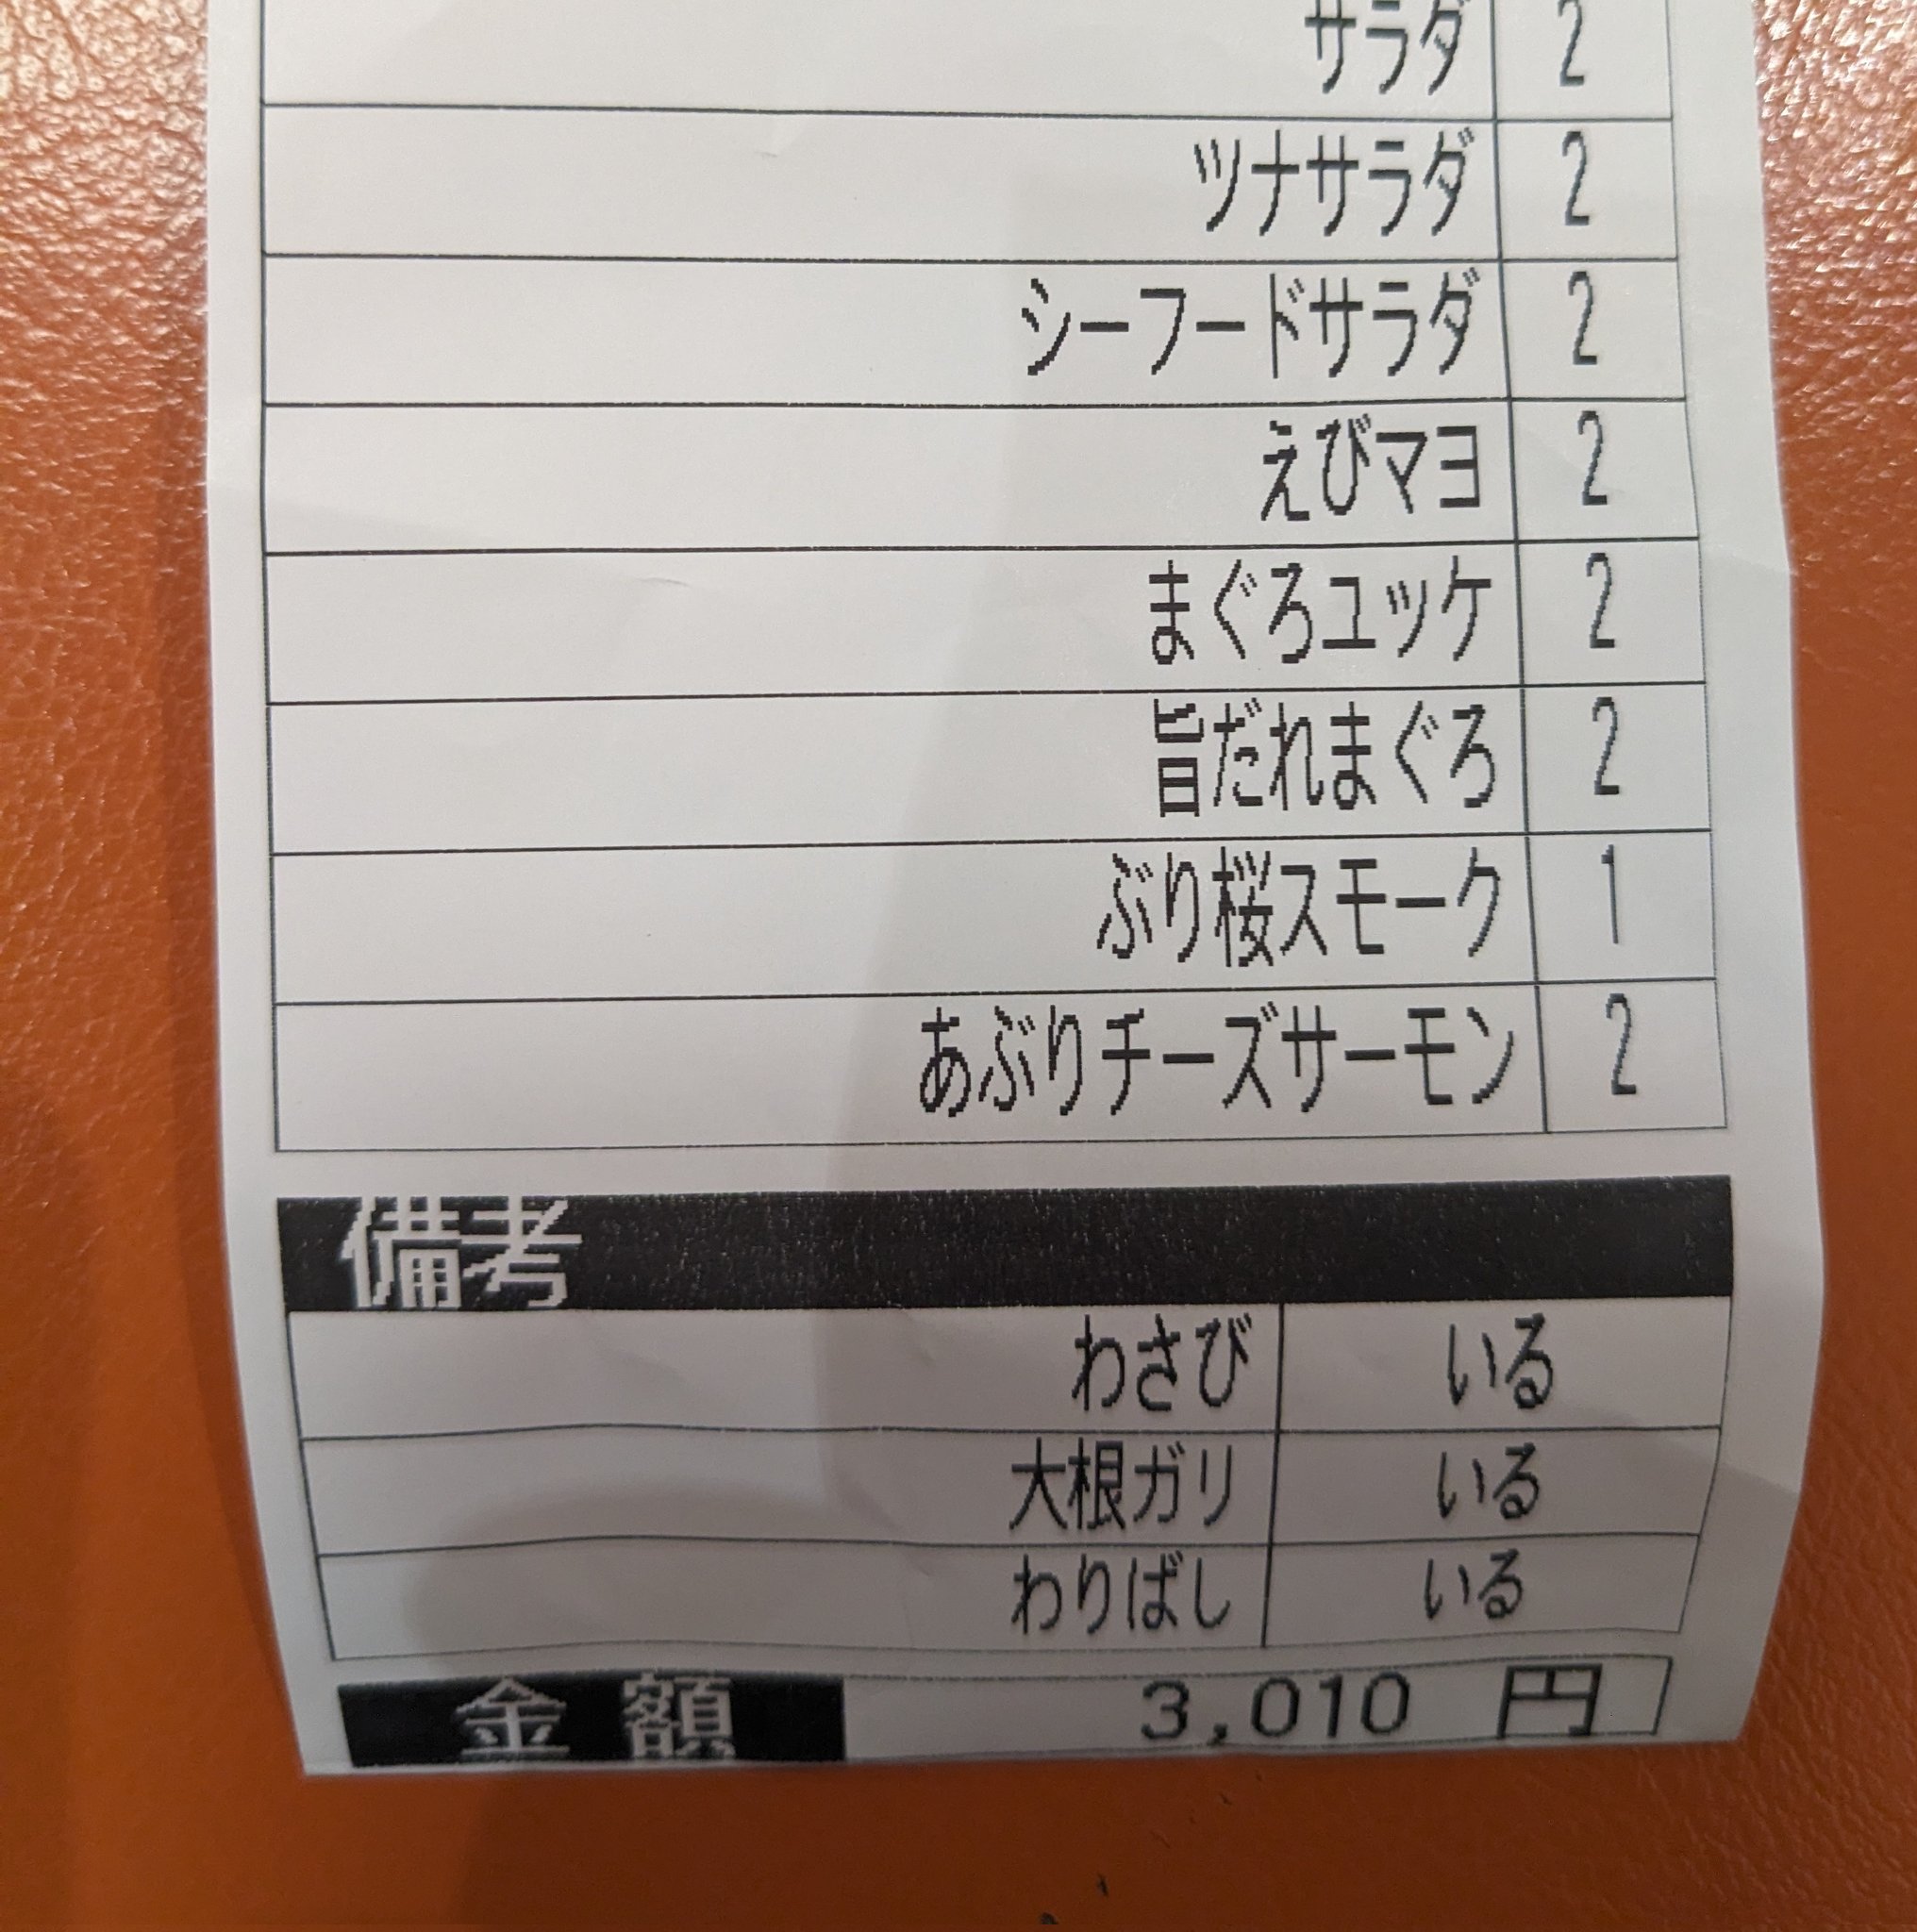 サラダ 2
ツナサラダ 2
シーフードサラダ 2
えびマヨ 2
まぐろユッケ 2
旨だれまぐろ 2
ぶり桜スモーク 1
あぶりチーズサーモン 2
備考
わさび いる
大根ガリ いる
わりばし いる
金額 3,010 円